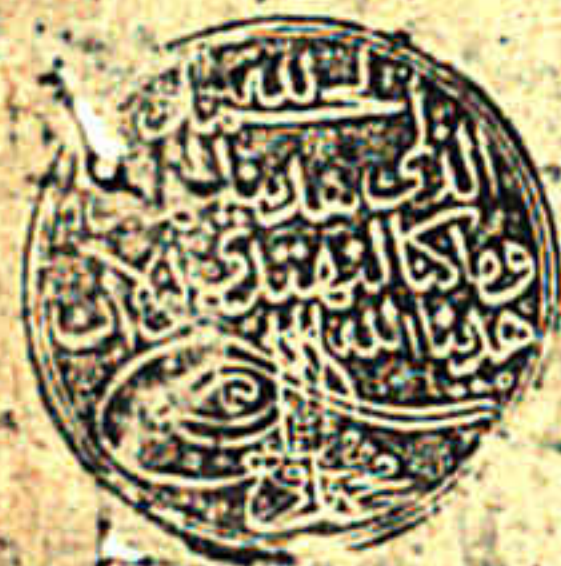 الحمد لله
الذى هدينا
وما كنا لنهتدي لولا ان
هدينا الله